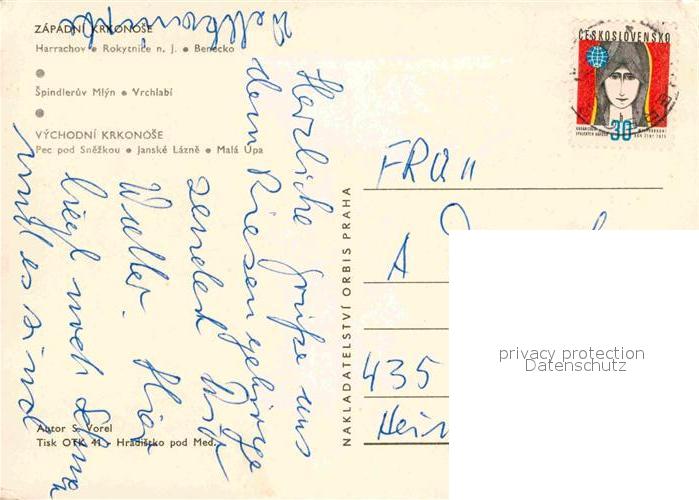 ZÁPADNÍ KRKONOŠE
Harrachov ● Rokytnice n. J. ● Benecko
Špindlerův Mlýn ● Vrchlabí
VÝCHODNÍ KRKONOŠE
Pec pod Sněžkou ● Janské Lázně ● Malá Úpa
Herzliche Grüße aus
dem Riesengebirge
sendet Dir
Walter. Hier
liegt noch Schnee
und es sind
Autor S. Vorel
Tisk OTK 41 - Hradištko pod Med.
NAKLADATELSTVÍ ORBIS PRAHA
ČESKOSLOVENSKO
30
FRAU
A
435
Hei
privacy protection
Datenschutz